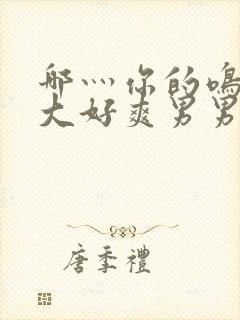 哪灬你的鳴
大好爽男男
唐季禮